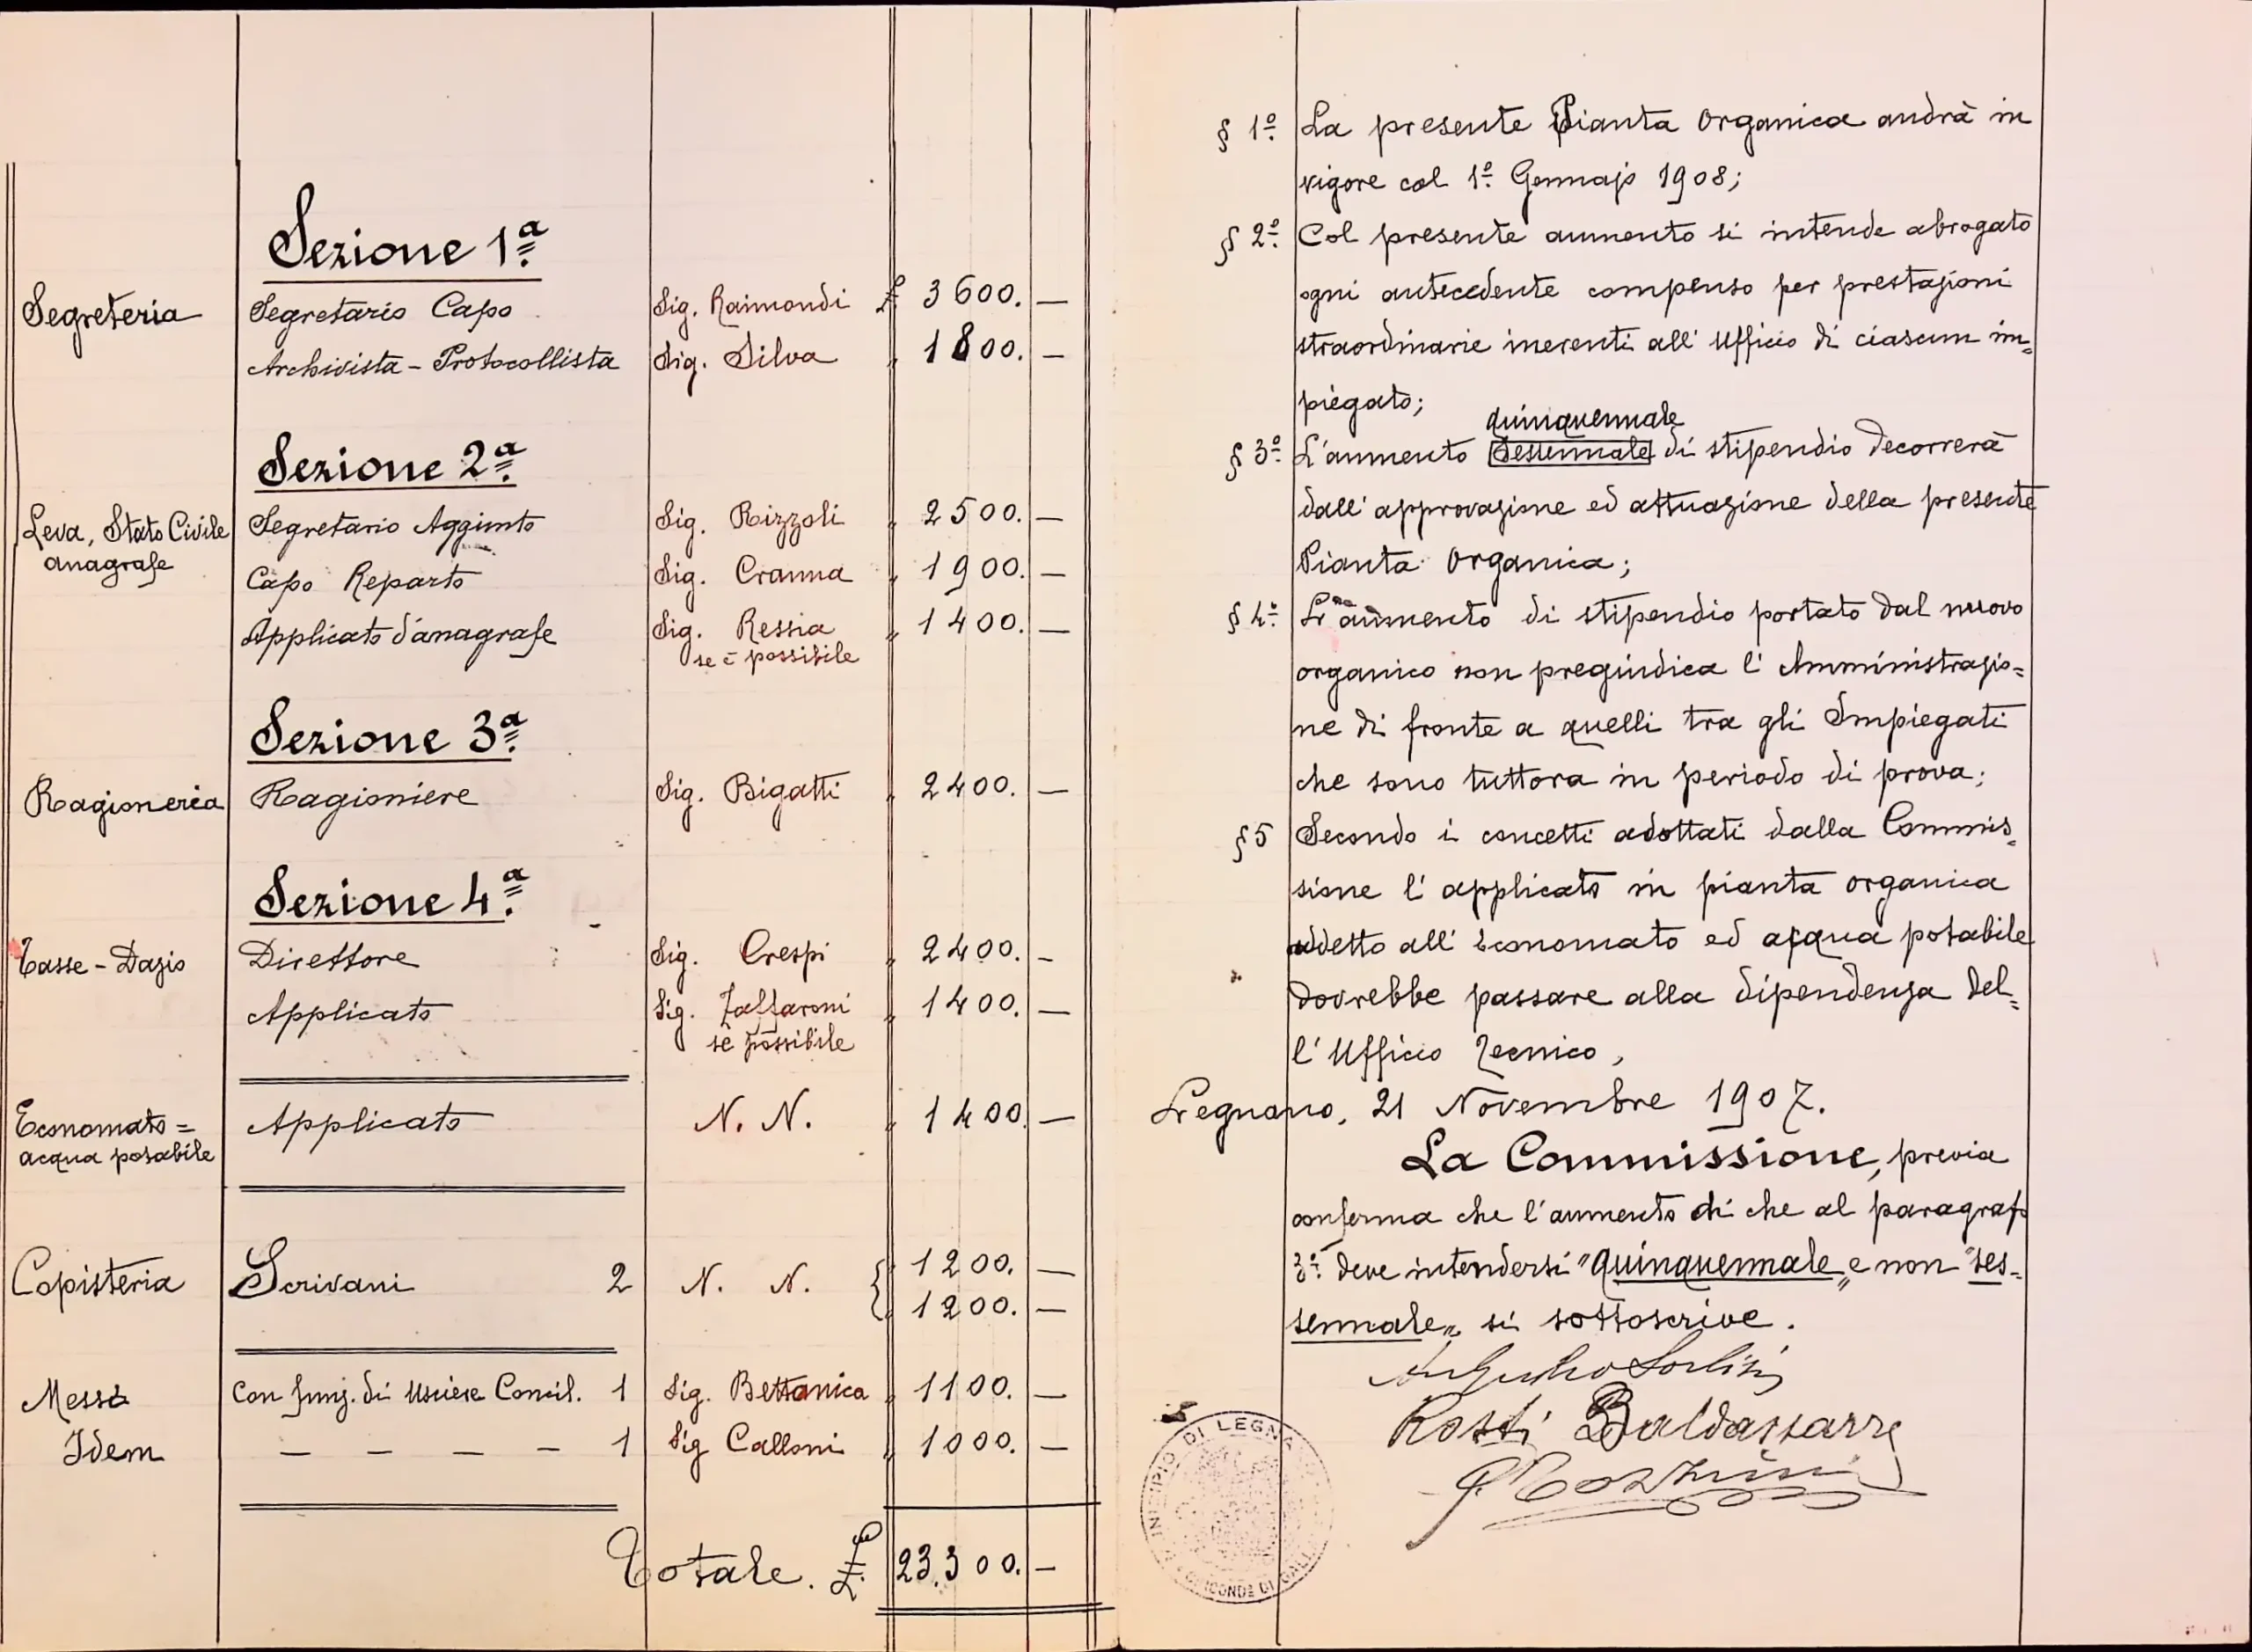 Sezione 1ª
Segreteria Segretario Capo Sig. Raimondi £ 3600. —
Archivista - Protocollista Sig. Silva „ 1800. —
Sezione 2ª
Leva, Stato Civile Segretario Aggiunto Sig. Rizzoli „ 2500. —
anagrafe Capo Reparto Sig. Cranna „ 1900. —
Applicato d'anagrafe Sig. Ressia „ 1400. —
se è possibile
Sezione 3ª
Ragioneria Ragioniere Sig. Bigatti „ 2400. —
Sezione 4ª
Tasse - Dazio Direttore Sig. Crespi „ 2400. —
Applicato Sig. Zaffaroni „ 1400. —
se possibile
Economato = Applicato N. N. „ 1400 —
acqua potabile
Copisteria Scrivani 2 N. N. { 1200. —
„ 1200. —
Messi Con funz. di Usciere Concil. 1 Sig. Bettonica „ 1100. —
Idem — — — — 1 Sig Calloni „ 1000. —
Totale. £ 23.300. —
§ 1º La presente Pianta Organica andrà in
vigore col 1º Gennajo 1908;
§ 2º Col presente aumento si intende abrogato
ogni antecedente compenso per prestazioni
straordinarie inerenti all' Ufficio di ciascun im=
piegato;
quinquennale
§ 3º L'aumento sessennale di stipendio decorrerà
dall' approvazione ed attuazione della presente
Pianta Organica;
§ 4º L'aumento di stipendio portato dal nuovo
organico non pregiudica l' Amministrazio=
ne di fronte a quelli tra gli Impiegati
che sono tuttora in periodo di prova;
§ 5 Secondo i concetti adottati dalla Commis=
sione l' applicato in pianta organica
addetto all' Economato ed acqua potabile
dovrebbe passare alla dipendenza del=
l' Ufficio Tecnico,
Legnano, 21 Novembre 1907.
La Commissione, previa
conferma che l'aumento di che al paragrafo
3º deve intendersi "quinquennale„ e non "ses=
sennale„ si sottoscrive.
Rosti Baldassarre
MUNICIPIO DI LEGNA